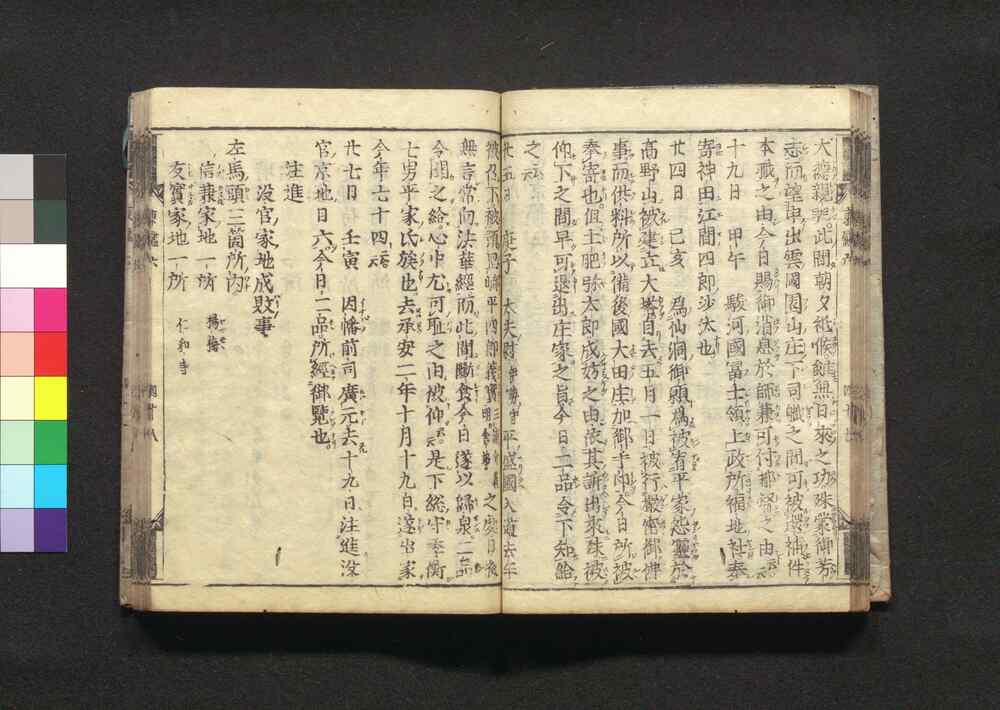 大徳親馳此間朝夕祗候雖無日來之功殊蒙御芳
志而望申出雲國園山庄下司軄之間可被還補件
本軄之由今日賜御消息於師兼引付都督之由云云
十九日 甲午 駿河國冨士領上政所福地社奉
寄神田江間四郎沙汰也
廿四日 己亥 爲仙洞御願爲被宥平家怨靈於
高野山被建立大塔自去五月一日被行嚴密御佛
事而供料所以備後國大田庄加御手印今日所被
奉寄也但土肥弥太郎成妨之由依其訴出來殊被
仰下之間早可退出庄家之旨今日二品令下知給
之云云
廿五日 庚子 大夫尉伊勢守平盛國入道去年
被召下被預岡﨑平四郎義實三浦介義明舎弟之處日夜
無言常向法華經而此間斷食今日遂以歸泉二品
令聞之給心中尤可恥之由被仰云云是下総守季衡
七男平家氏族也去承安二年十月十九日遂出家
今年七十四云云
廿七日 壬寅 因幡前司廣元去十九日注進沒
官京地目六今日二品所經御覽也
注進
沒官家地成敗事
左馬頭三箇所内
信兼家地一所 楊梅
友實家地一所 仁和寺